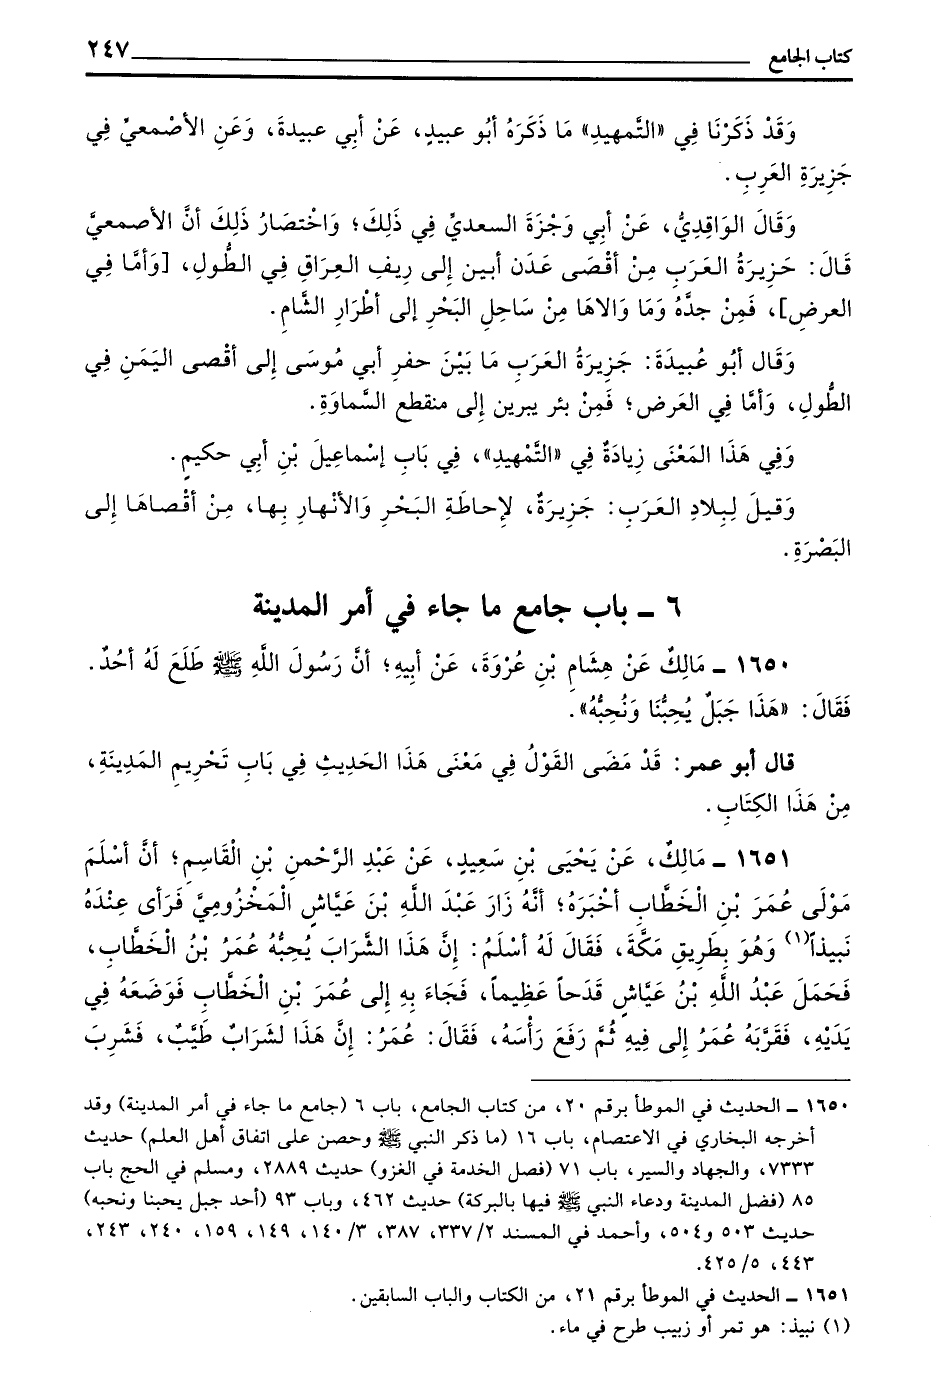 كتاب الجامع ٢٤٧
وَقَدْ ذَكَرْنَا فِي «التَّمهيدِ» مَا ذَكَرَهُ أبُو عبيدٍ، عَنْ أبِي عبيدةَ، وَعَنِ الأصْمعيِّ فِي
جَزِيرَةِ العَربِ.
وَقَالَ الوَاقِدِيُّ، عَنْ أبِي وَجْزَةَ السعديِّ فِي ذَلِكَ؛ وَاخْتصَارُ ذَلِكَ أنَّ الأصمعيَّ
قَالَ: جَزِيرَةُ العَرَبِ مِنْ أقْصَى عَدَن أبين إلى رِيفِ العِراقِ فِي الطُّولِ، [وَأمَّا فِي
العرضِ]، فَمِنْ جدَّهُ وَمَا وَالاهَا مِنْ سَاحِلِ البَحْرِ إلى أطْرَارِ الشَّامِ.
وَقَال أبُو عُبيدَةَ: جَزِيرَةُ العَرَبِ مَا بَيْنَ حفرِ أبي مُوسَى إلى أقْصى اليَمَنِ فِي
الطُّولِ، وَأمَّا فِي العَرض؛ فَمِنْ بئر يبرين إلى منقطع السَّماوَةِ.
وَفِي هَذَا المَعْنَى زِيادَةٌ فِي «التَّمْهيدِ»، فِي بَابِ إسْماعيلَ بْنِ أبي حكيمٍ.
وَقيلَ لِبِلادِ العَرَبِ: جَزِيرَةٌ، لإحاطَةِ البَحْرِ وَالأنْهارِ بِها، مِنْ أقْصاهَا إلى
البَصْرَةِ.
٦ ـ باب جامع ما جاء في أمر المدينة
١٦٥٠ ـ مَالِكٌ عَنْ هِشَامِ بْنِ عُرْوَةَ، عَنْ أبِيهِ؛ أنَّ رَسُولَ اللَّهِ ﷺ طَلَعَ لَهُ أحُدٌ.
فَقَالَ: «هَذَا جَبَلٌ يُحِبُّنَا وَنُحِبُّهُ».
قال أبو عمر: قَدْ مَضَى القَوْلُ فِي مَعْنَى هَذَا الحَدِيثِ فِي بَابِ تَحْرِيمِ المَدِينَةِ،
مِنْ هَذَا الكِتَابِ.
١٦٥١ ـ مَالِكٌ، عَنْ يَحْيَى بْنِ سَعِيدٍ، عَنْ عَبْدِ الرَّحْمنِ بْنِ الْقَاسِمِ؛ أنَّ أسْلَمَ
مَوْلَى عُمَرَ بْنِ الْخَطَّابِ أخْبَرَهُ؛ أنَّهُ زَارَ عَبْدَ اللَّهِ بْنَ عَيَّاشٍ الْمَخْزُومِيَّ فَرَأى عِنْدَهُ
نَبيذاً(١) وَهُوَ بِطَرِيقِ مَكَّةَ، فَقَالَ لَهُ أسْلَمُ: إنَّ هَذَا الشَّرَابَ يُحِبُّهُ عُمَرُ بْنُ الْخَطَّابِ،
فَحَمَلَ عَبْدُ اللَّهِ بْنُ عَيَّاشٍ قَدَحاً عَظِيماً، فَجَاءَ بِهِ إلى عُمَرَ بْنِ الْخَطَّابِ فَوَضَعَهُ فِي
يَدَيْهِ، فَقَرَّبَهُ عُمَرُ إلى فِيهِ ثُمَّ رَفَعَ رَأْسَهُ، فَقَالَ: عُمَرُ: إنَّ هَذَا لشَرَابٌ طَيَّبٌ، فَشَرِبَ
١٦٥٠ ـ الحديث في الموطأ برقم ٢٠، من كتاب الجامع، باب ٦ (جامع ما جاء في أمر المدينة) وقد
أخرجه البخاري في الاعتصام، باب ١٦ (ما ذكر النبي ﷺ وحصن على اتفاق أهل العلم) حديث
٧٣٣٣، والجهاد والسير، باب ٧١ (فصل الخدمة في الغزو) حديث ٢٨٨٩، ومسلم في الحج باب
٨٥ (فضل المدينة ودعاء النبي ﷺ فيها بالبركة) حديث ٤٦٢، وباب ٩٣ (أحد جبل يحبنا ونحبه)
حديث ٥٠٣ و٥٠٤، وأحمد في المسند ٢/ ٣٣٧، ٣٨٧، ٣/ ١٤٠، ١٤٩، ١٥٩، ٢٤٠، ٢٤٣،
٤٤٣، ٥/ ٤٢٥.
١٦٥١ ـ الحديث في الموطأ برقم ٢١، من الكتاب والباب السابقين.
(١) نبيذ: هو تمر أو زبيب طرح في ماء.